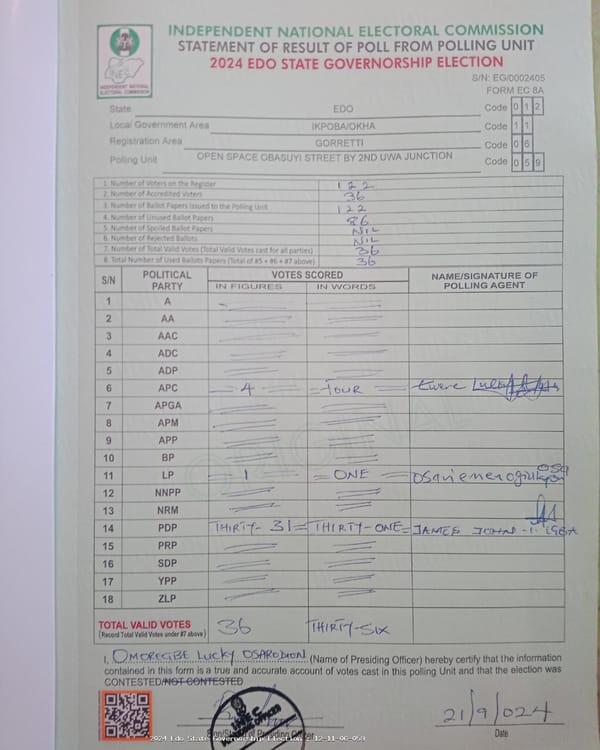 INDEPENDENT NATIONAL ELECTORAL COMMISSION
STATEMENT OF RESULT OF POLL FROM POLLING UNIT
2024 EDO STATE GOVERNORSHIP ELECTION
INDEPENDENT NATIONAL ELECTORAL COMMISSION
S/N: EG/0002405
FORM EC 8A
State EDO Code 0 1 2
Local Government Area IKPOBA/OKHA Code 1 1
Registration Area GORRETTI Code 0 6
Polling Unit OPEN SPACE OBASUYI STREET BY 2ND UWA JUNCTION Code 0 5 9
1. Number of Voters on the Register 122
2. Number of Accredited Voters 36
3. Number of Ballot Papers Issued to the Polling Unit 122
4. Number of Unused Ballot Papers 86
5. Number of Spoiled Ballot Papers NIL
6. Number of Rejected Ballots NIL
7. Number of Total Valid Votes (Total Valid Votes cast for all parties) 36
8. Total Number of Used Ballots Papers (Total of #5 + #6 + #7 above) 36
S/N POLITICAL PARTY VOTES SCORED NAME/SIGNATURE OF POLLING AGENT
IN FIGURES IN WORDS
1 A
2 AA
3 AAC
4 ADC
5 ADP
6 APC 4 FOUR
7 APGA
8 APM
9 APP
10 BP
11 LP 1 ONE
12 NNPP
13 NRM
14 PDP THIRTY-31 THIRTY-ONE JAMES JOHN
15 PRP
16 SDP
17 YPP
18 ZLP
TOTAL VALID VOTES 36 THIRTY-SIX
(Record Total Valid Votes under #7 above)
I, OMOREGBE LUCKY OSARODION (Name of Presiding Officer) hereby certify that the information
contained in this form is a true and accurate account of votes cast in this polling Unit and that the election was
CONTESTED/NOT CONTESTED
21/9/024
Date